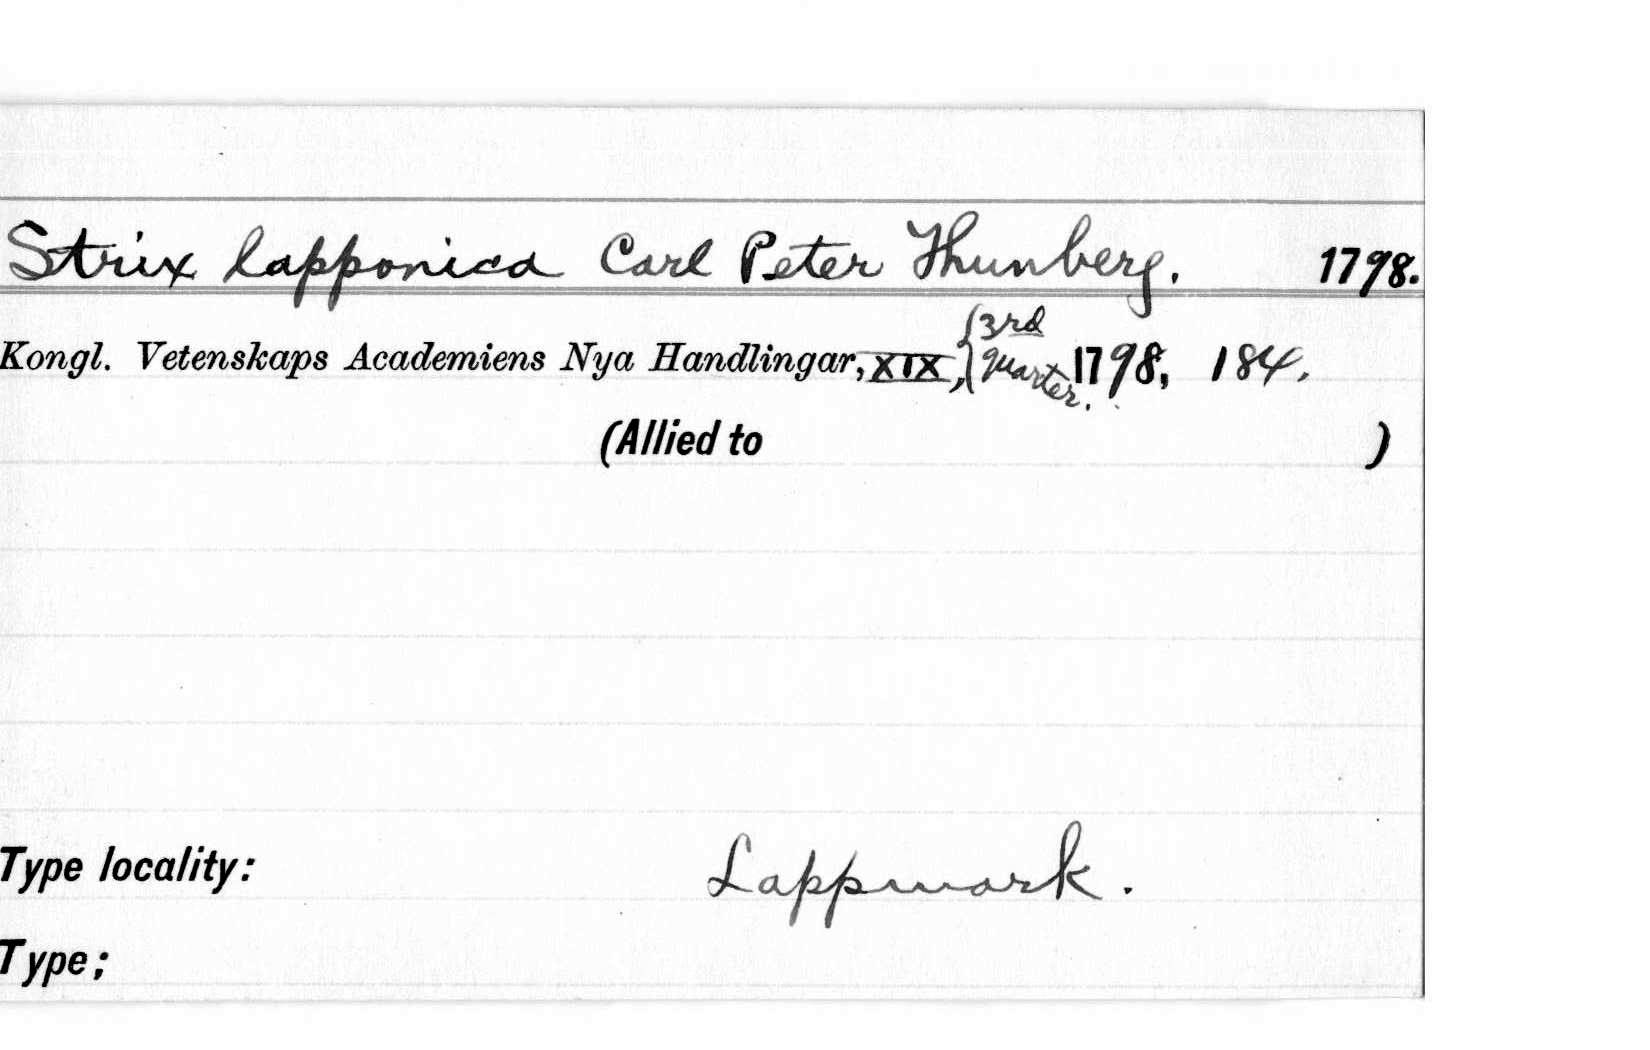 Strix lapponica Carl Peter Thunberg. 1798.
Kongl. Vetenskaps Academiens Nya Handlingar, XIX, {3rd quarter. 1798, 184.
(Allied to )
Type locality: Lappmark.
Type;